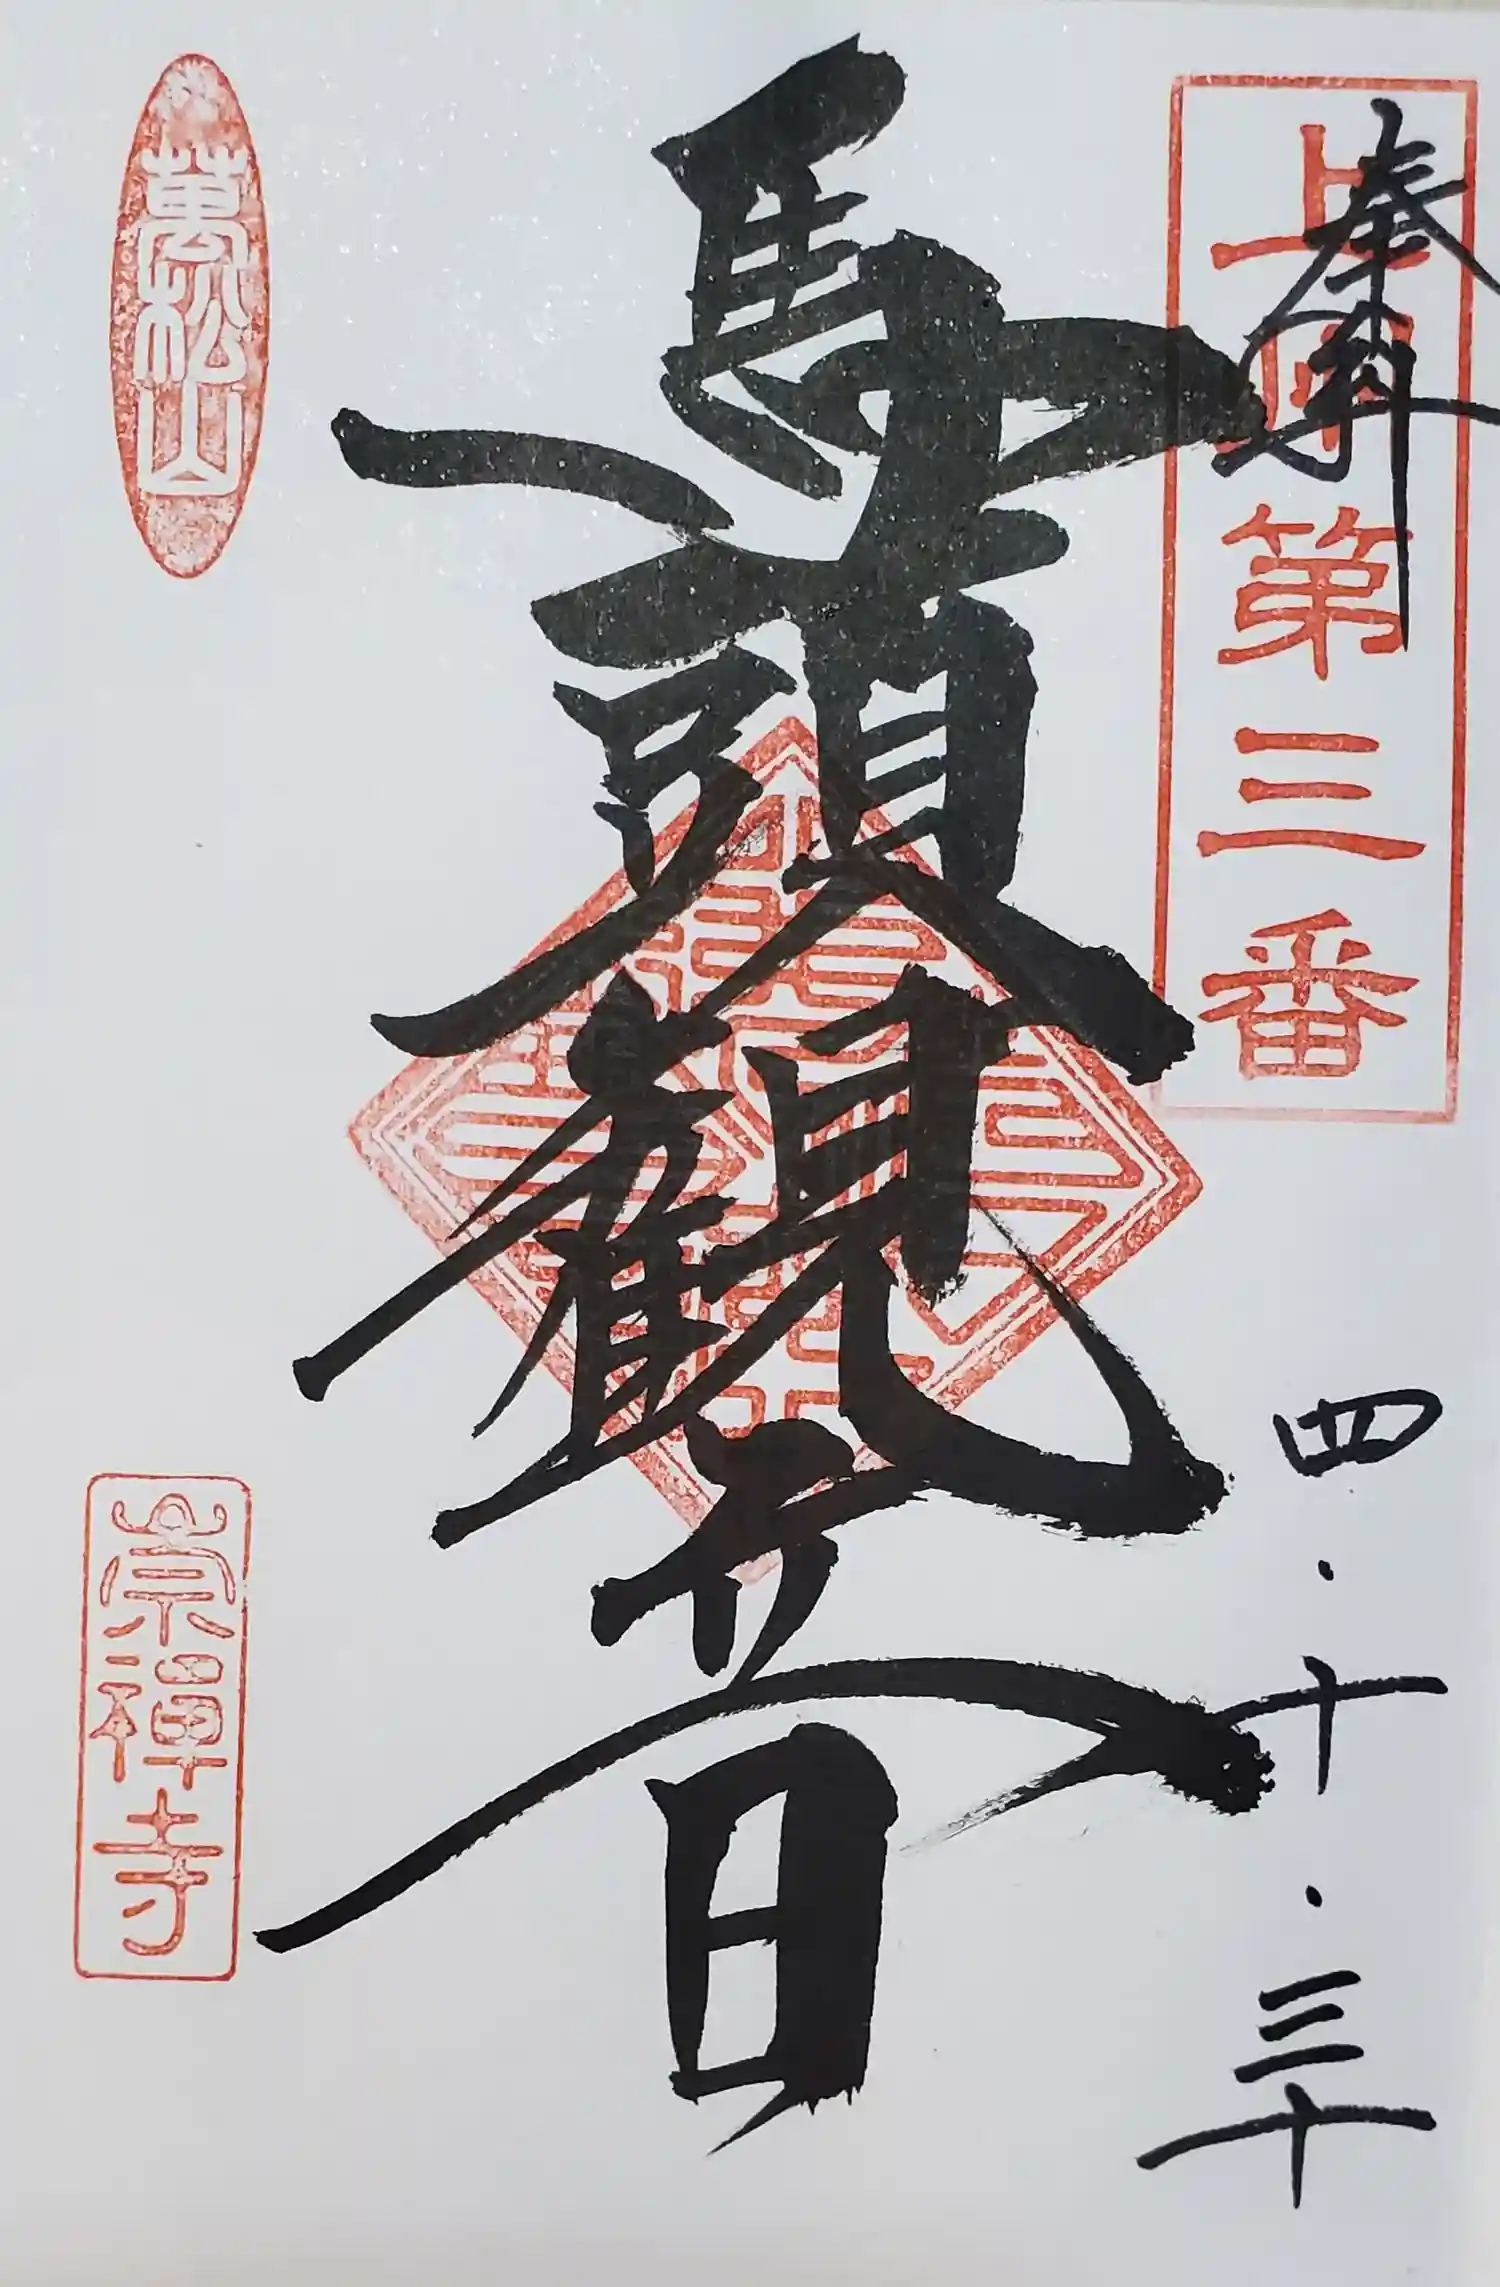 奉拝
第三番
四・十・三十
馬頭観音
萬松山
崇禪寺